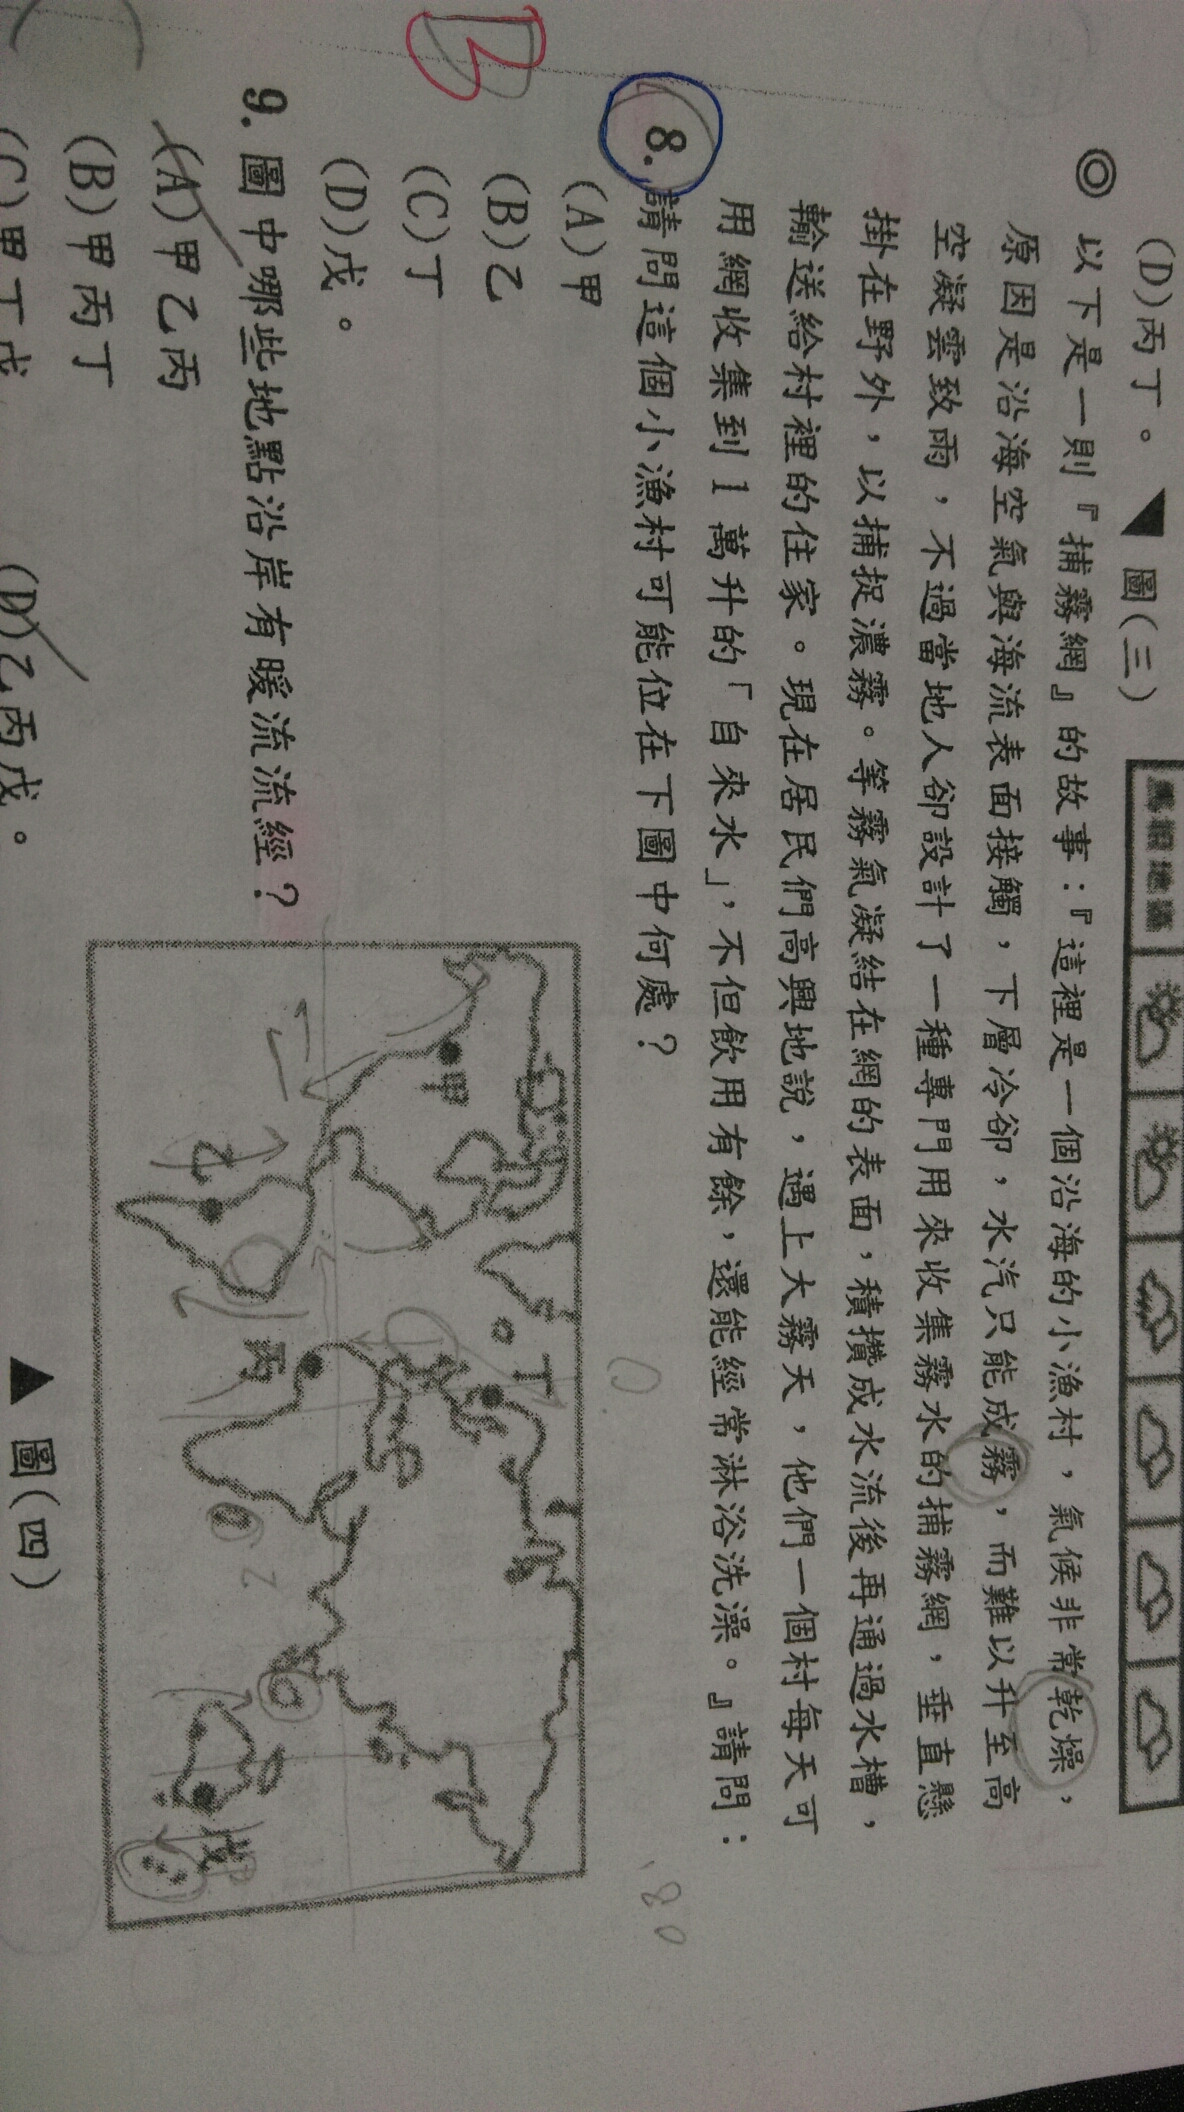 (D)丙丁。 ▼ 圖(三)
◎ 以下是一則『捕霧網』的故事:『這裡是一個沿海的小漁村,氣候非常乾燥,
原因是沿海空氣與海流表面接觸,下層冷卻,水汽只能成霧,而難以升至高
空凝雲致雨,不過當地人卻設計了一種專門用來收集霧水的捕霧網,垂直懸
掛在野外,以捕捉濃霧。等霧氣凝結在網的表面,積攢成水流後再通過水槽,
輸送給村裡的住家。現在居民們高興地說,遇上大霧天,他們一個村每天可
用網收集到1萬升的「自來水」,不但飲用有餘,還能經常淋浴洗澡。』請問:
B
8. 請問這個小漁村可能位在下圖中何處?
(A)甲
(B)乙
(C)丁
(D)戊。
9. 圖中哪些地點沿岸有暖流流經?
(A)甲乙丙
(B)甲丙丁
(C)甲丁戊
(D)乙丙戊。
甲
乙
丙
丁
戊
▲ 圖(四)